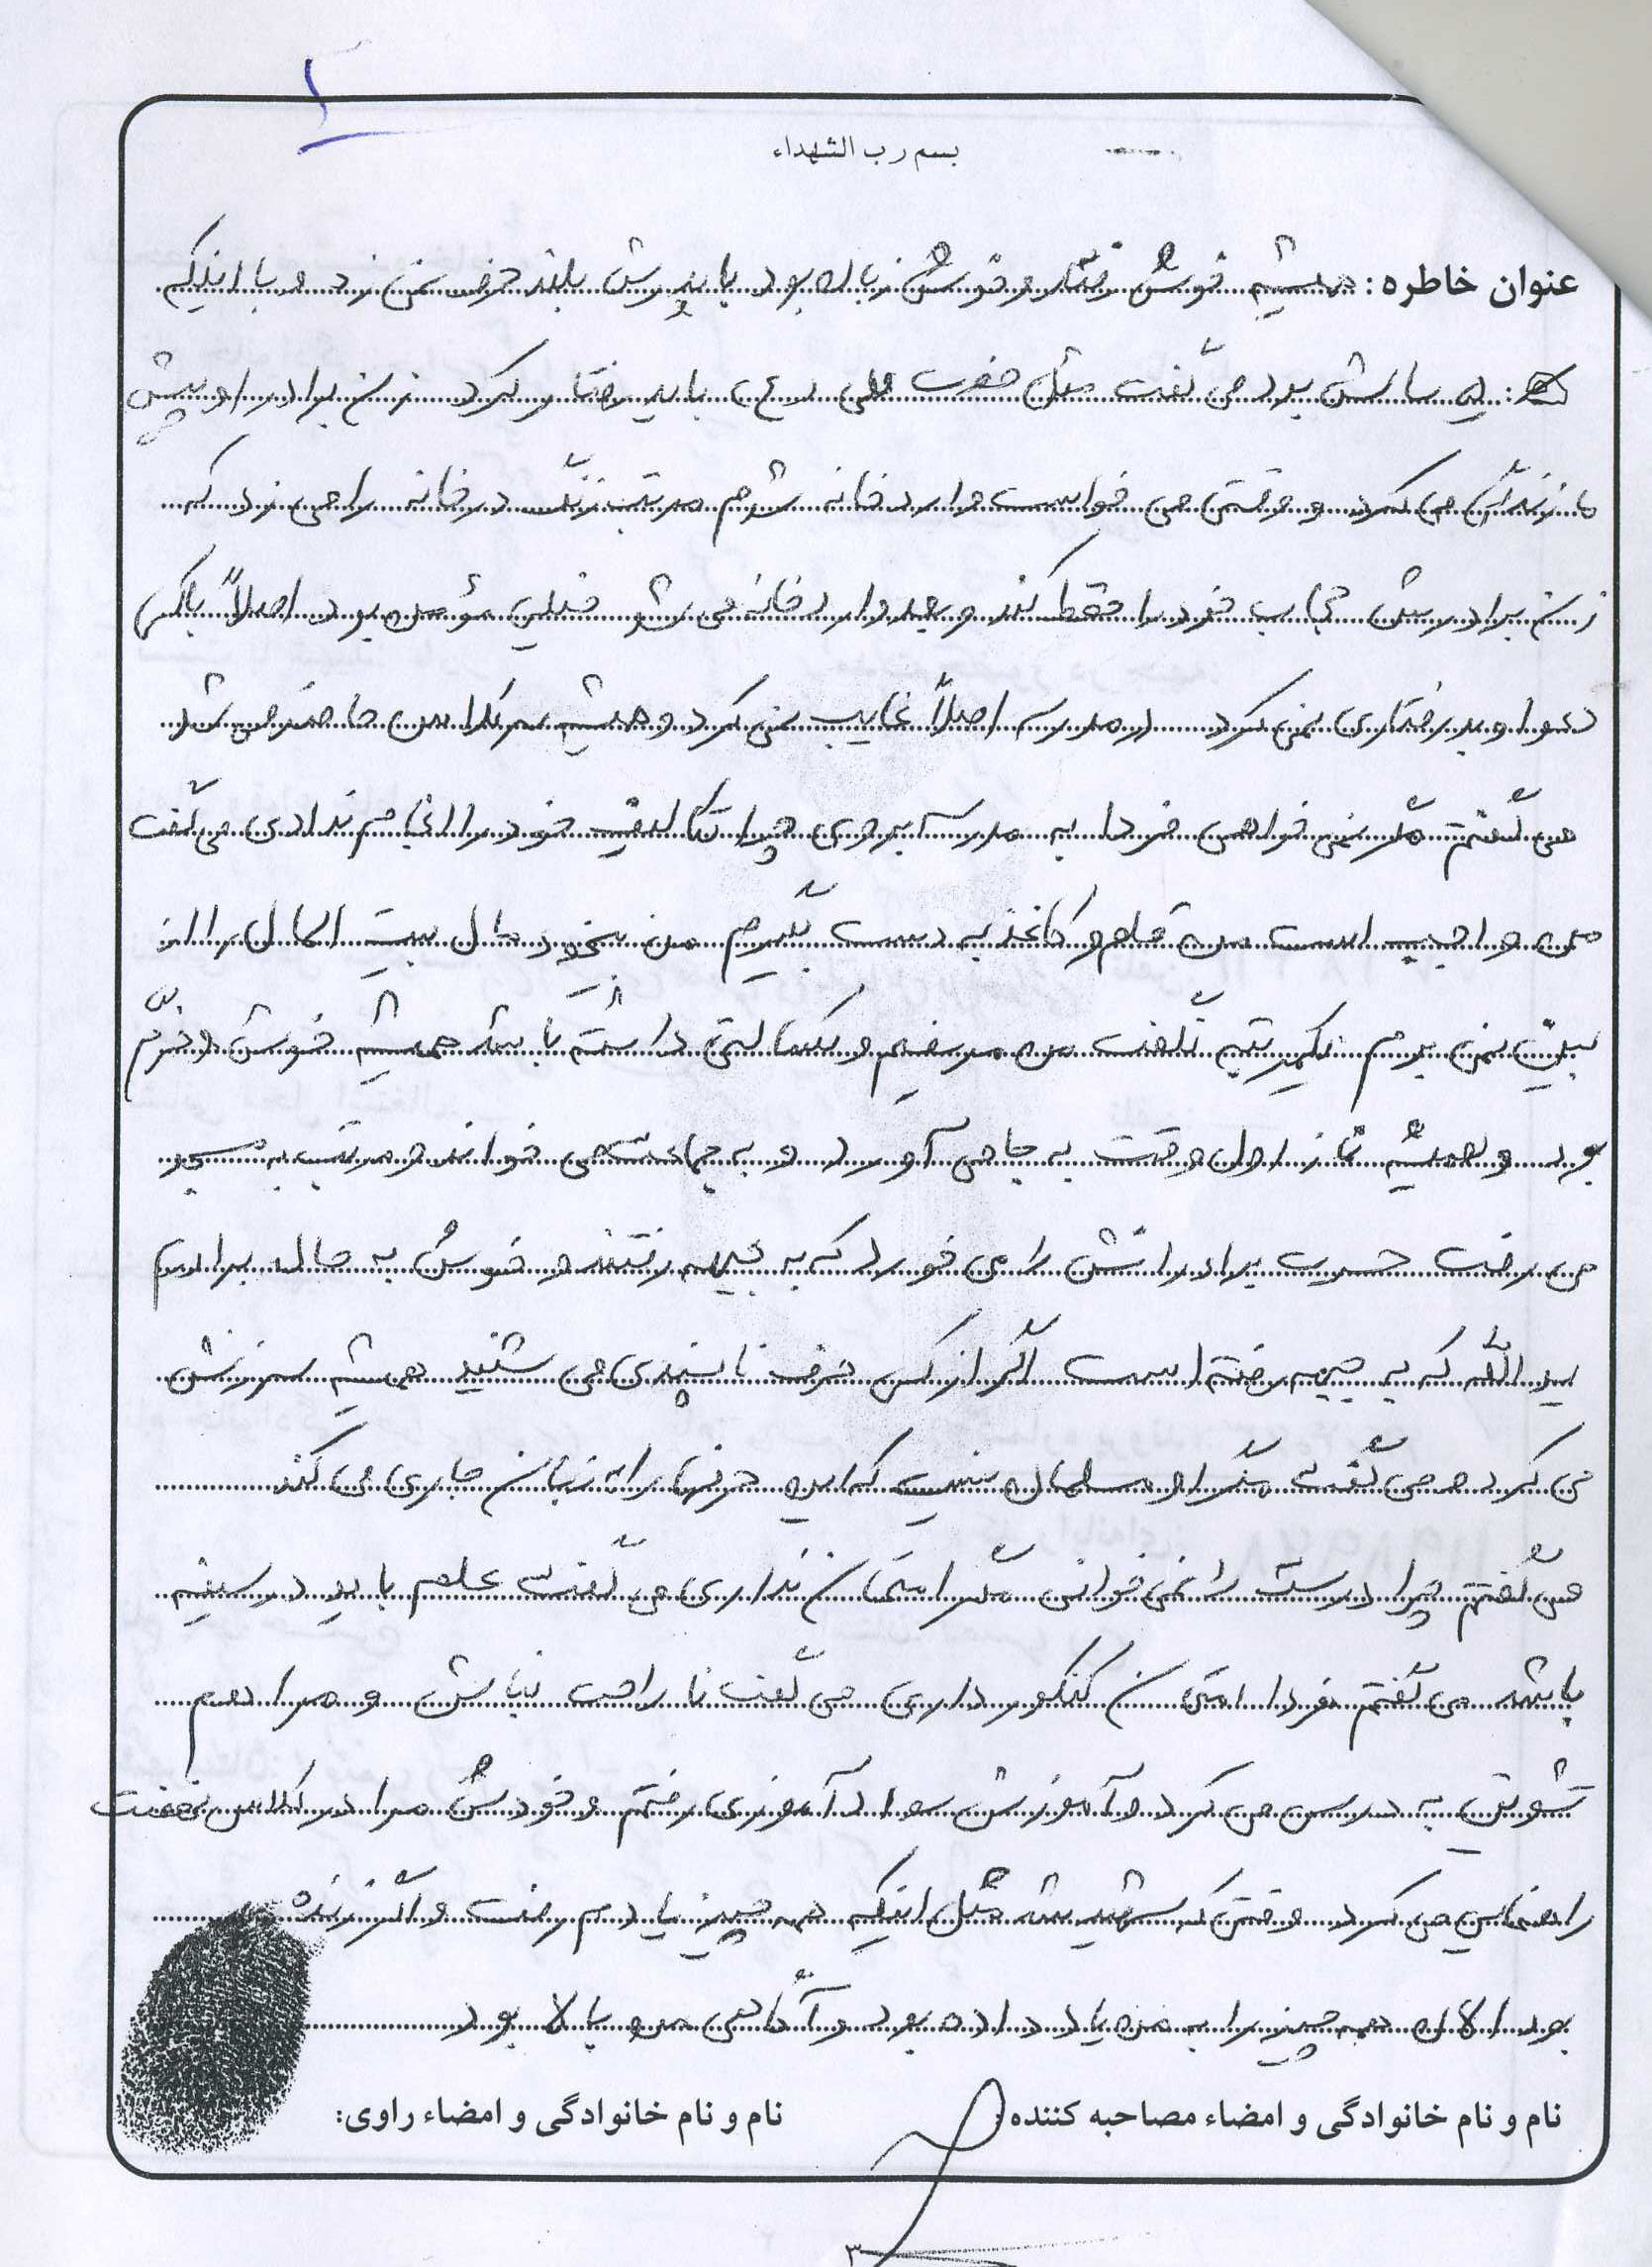 ۱
بسم رب الشهداء
عنوان خاطره: همیشه خوش رفتار و خوش زبان بود با پدرش بلند حرف نمی زد و با اینکه
سالش بود می گفت مثل حضرت علی (ع) باید رفتار کرد زن برادر او پیش
ما زندگی می کرد و وقتی می خواست وارد خانه شوم مرتب زنگ در خانه را می زد که
زن برادرش حجاب خود را حفظ کند و بعد وارد خانه می شد خیلی مؤمن بود اصلاً با کس
دعوا و بد رفتاری نمی کرد در مدرسه اصلاً غایب نمی کرد و همیشه سر کلاس حاضر می شد
می گفتم مگر نمی خواهی فردا به مدرسه بروی چرا تکالیف خود را انجام ندادی می گفت
من واجب است من قلم و کاغذ به دست بگیرم من بیخود مال بیت المال را از
بین نمی برم یکمرتبه نگفت من مریضم و کسالتی داشته باشد همیشه خوش و خرّم
بود و همیشه نماز اول وقت به جا می آورد و به جماعت می خواند و مرتب به مسجد
می رفت حسرت برادرانش را می خورد که به جبهه رفتند و خوش به حال برادرم
ید الله که به جبهه رفته است اگر از کسی حرف ناپسندی می شنید همیشه سرزنش
می کرد و می گفت مگر او مسلمان نیست که این حرفها را به زبان جاری می کند
می گفتم چرا درست را نمی خوانی مگر امتحان نداری می گفت علم باید در سینه
باشد می گفتم فردا امتحان کنکور داری می گفت ناراحت نباش و مرا هم
تشویق به درس می کرد و آموزش سواد آموزی رفتم و خودش مرا در کلاس نهضت
راهنمایی می کرد وقتی که شهید شد مثل اینکه همه چیز یادم رفت و اگر زنده
بود الان همه چیز را به من یاد داده بود و آگاهی من بالا بود
نام و نام خانوادگی و امضاء مصاحبه کننده: نام و نام خانوادگی و امضاء راوی:
۳